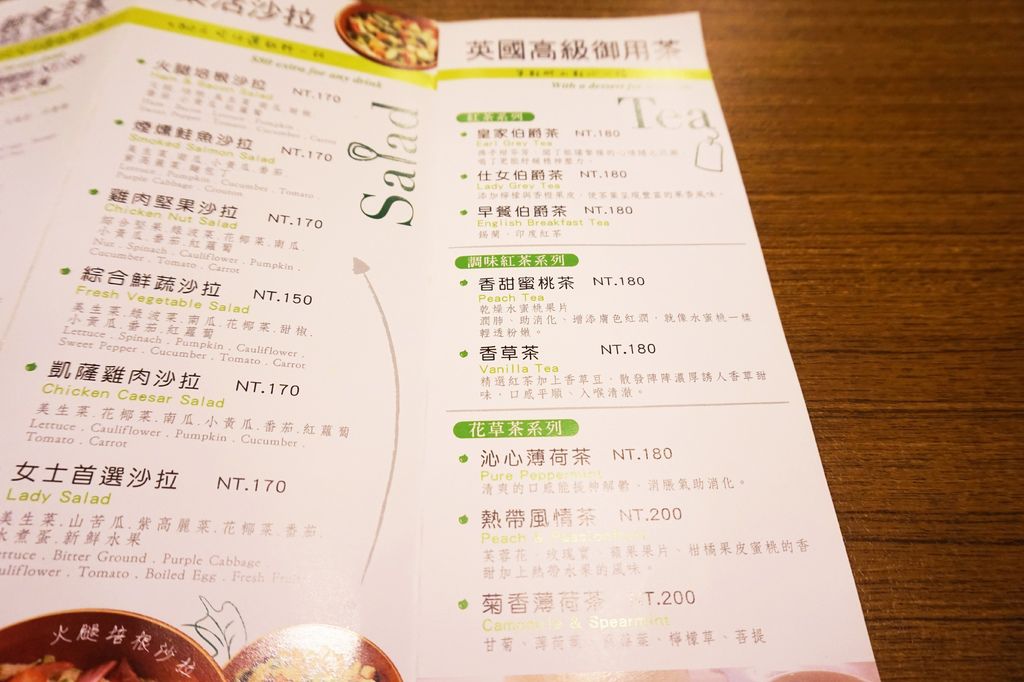 活沙拉
$80 extra for any drink
Salad
火腿培根沙拉 NT.170
Ham & Bacon Salad
煙燻鮭魚沙拉 NT.170
Smoked Salmon Salad
Lettuce . Pumpkin . Cucumber . Tomato
Purple Cabbage . Crouton
雞肉堅果沙拉 NT.170
Chicken Nut Salad
綜合堅果.綠波菜.花椰菜.南瓜.
小黃瓜.番茄.紅蘿蔔
Nut . Spinach . Cauliflower . Pumpkin .
Cucumber . Tomato . Carrot
綜合鮮蔬沙拉 NT.150
Fresh Vegetable Salad
美生菜.綠波菜.南瓜.花椰菜.甜椒.
小黃瓜.番茄.紅蘿蔔
Lettuce . Spinach . Pumpkin . Cauliflower .
Sweet Pepper . Cucumber . Tomato . Carrot
凱薩雞肉沙拉 NT.170
Chicken Caesar Salad
美生菜.花椰菜.南瓜.小黃瓜.番茄.紅蘿蔔
Lettuce . Cauliflower . Pumpkin . Cucumber .
Tomato . Carrot
女士首選沙拉 NT.170
Lady Salad
美生菜.山苦瓜.紫高麗菜.花椰菜.番茄.
水煮蛋.新鮮水果
ettuce . Bitter Ground . Purple Cabbage .
uliflower . Tomato . Boiled Egg . Fresh Fruit
火腿培根沙拉
英國高級御用茶
With a dessert for
Tea
紅茶系列
皇家伯爵茶 NT.180
Earl Grey Tea
仕女伯爵茶 NT.180
Lady Grey Tea
添加檸檬與香橙果皮，使茶葉呈現豐富的果香風味。
早餐伯爵茶 NT.180
English Breakfast Tea
錫蘭、印度紅茶
調味紅茶系列
香甜蜜桃茶 NT.180
Peach Tea
乾燥水蜜桃果片
潤肺、助消化、增添膚色紅潤，就像水蜜桃一樣
輕透粉嫩。
香草茶 NT.180
Vanilla Tea
精選紅茶加上香草豆，散發陣陣濃厚誘人香草甜
味，口感平順、入喉清澈。
花草茶系列
沁心薄荷茶 NT.180
Pure Peppermint
清爽的口感能提神解鬱、消脹氣助消化。
熱帶風情茶 NT.200
Peach & Passionfruit
芙蓉花、玫瑰實、蘋果果片、柑橘果皮蜜桃的香
甜加上熱帶水果的風味。
菊香薄荷茶 NT.200
Camomile & Spearmint
甘菊、薄荷葉、檸檬草、菩提